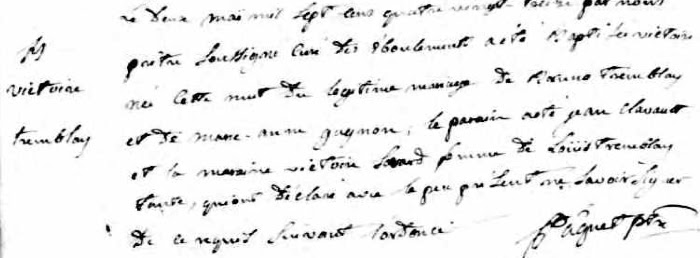 Le deux mai mil sept cens quatre vingt treize par nous
prêtre soussigné curé des éboulements a été baptisée victoire
née cette nuit du légitime mariage de Bruno tremblay
et de marie-anne gagnon, le parain a été jean clavault
et la maraine victoire Savard femme de Louis tremblay
tante, qui ont déclaré avec le peu présent ne savoir signer
de ce requis suivant l'ordonce
Paquet ptr
victoire
tremblay